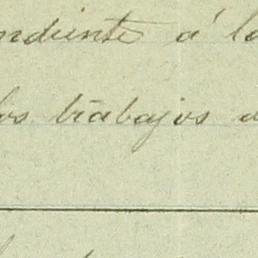 ndiente á la
los trabajos